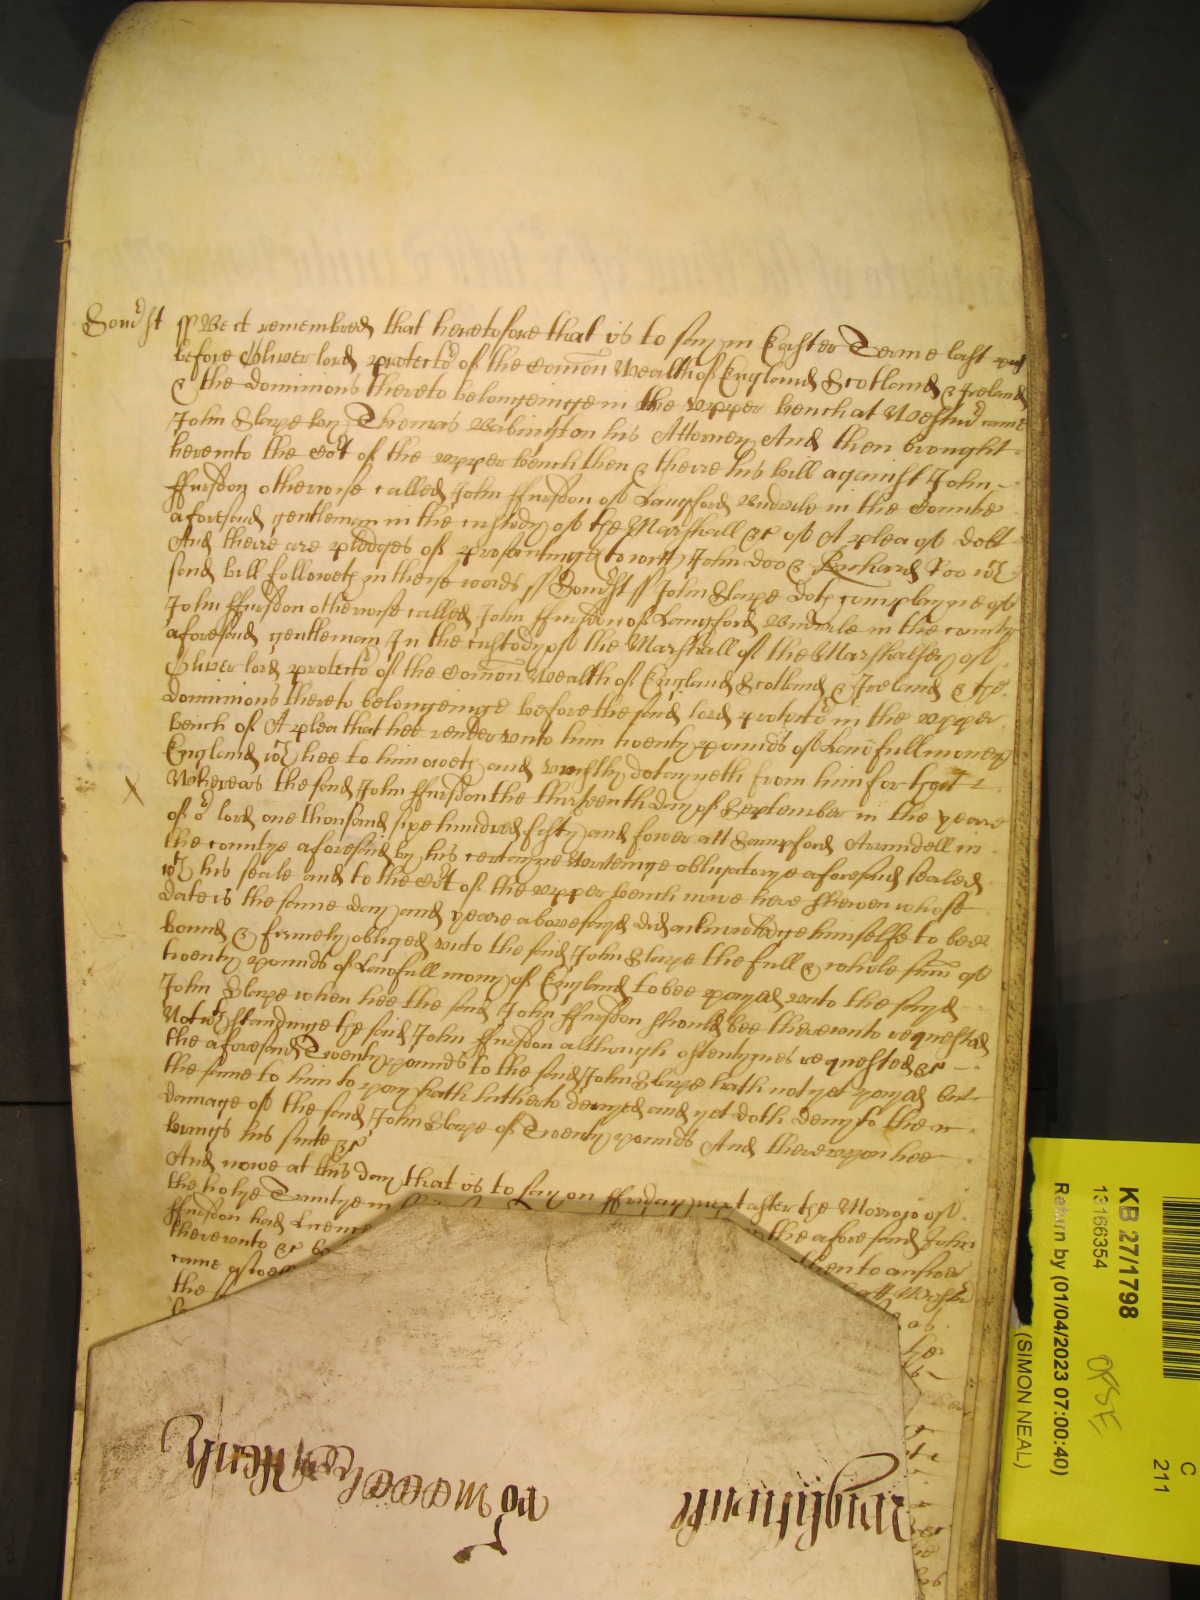 Somst ss Bee it remembred that heretofore that is to say in Easter Terme last past
before Oliver lord protector of the Comon Wealth of England Scotland & Ireland
& the dominions thereto belonginge in the upper bench at Westmr came
John Slape by Thomas Babington his Attorney And then brought
here into the Cort of the upper bench then & there his bill against John
ffursdon otherwise called John ffursdon of Langford Budvile in the Countie
aforesaid gentleman in the custody of the Marshall &c of A plea of debt
And there are pledges of prosecutinge to witt John Doo & Richard Roo wch
said bill followeth in these words ss Somst ss John Slape doth complayne of
John ffursdon otherwise called John ffursdon of Langford Budvile in the county
aforesaid gentleman In the custody of the Marshall of the Marshalsey of
Oliver lord protector of the Comon Wealth of England Scotland & Ireland & the
Dominions thereto belonginge before the said lord protector in the upper
bench of A plea that hee render unto him twenty pounds of Lawfull money
England wch hee to him oweth and uniustly detayneth from him for that
Whereas the said John ffursdon the thirteenth day of September in the yeare
of or lord one thousand sixe hundred fifty and fower att Sampford Arundell in
the countye aforesaid by his certayne writeinge obligatorye aforesaid sealed
wth his seale and to the Cort of the upper bench nowe here shewen whose
date is the same day and yeare abovesayd did acknowledge himselfe to bee
bound & firmely obliged unto the said John Slape the full & whole sum of
twenty pounds of Lawfull mony of England to bee payed unto the sayd
John Slape when hee the said John ffursdon should bee thereunto requested
Notwthstandinge the said John ffursdon although oftentymes requested &c
the aforesaid Twenty pounds to the said John Slape hath not yet payed but
the same to him to pay hath hitherto denyed and yet doth deny to the
damage of the said John Slape of Twenty pounds And thereupon hee
brings his suite &c
And nowe at this day that is to say on ffriday next after the Morrow of
the holye Trinitye in the aforesaid John
ffursdon had Licence then to answer
thereunto &c att Westmr
came aswell
the
KB 27/1798
13166354
Return by (01/04/2023 07:00:40)
(SIMON NEAL)
C
211